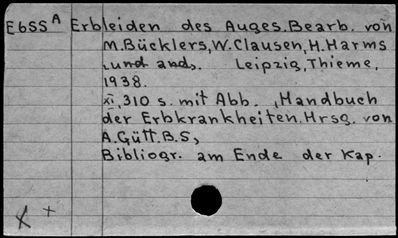 E6SS A Erbleiden des Auges. Bearb. von
M. Bücklers, W. Clausen, H. Harms
und and. Leipzig, Thieme,
1938.
XI, 310 s. mit Abb. (Handbuch
der Erbkrankheiten. Hrsg. von
A. Gütt. B. 5)
Bibliogr. am Ende der Kap.
X +